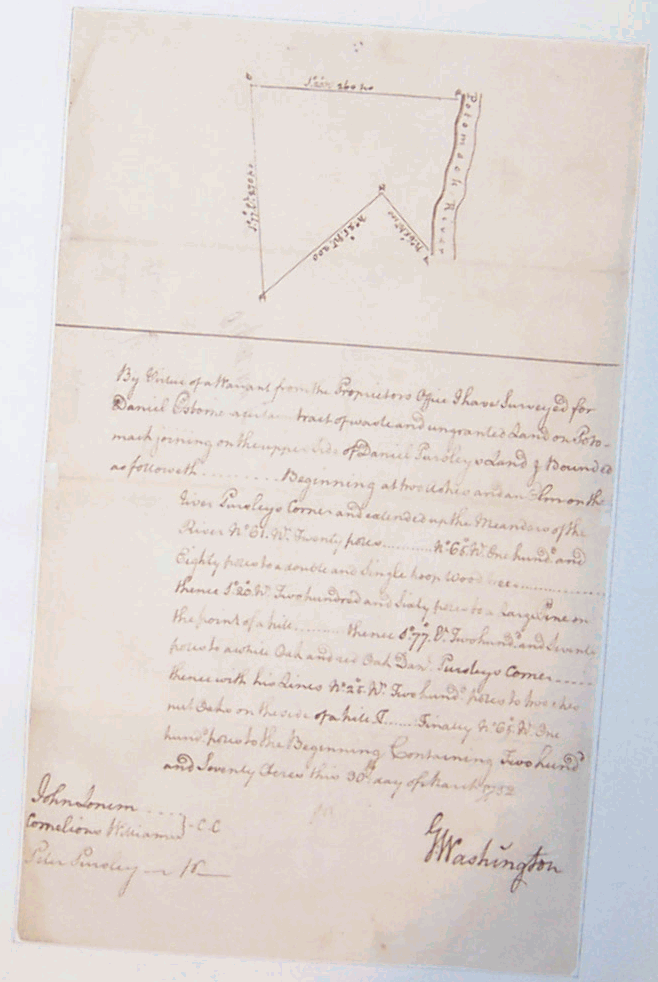 Potomack River
By Virtue of a Warrant from the Proprietors Office I have Surveyed for
Daniel Osborne a certain tract of waste and ungranted Land on Poto-
mack joining on the upper side of Daniel Pursleys Land & Bounded
as followeth .......... Beginning at two and an Elm on the
River Pursleys Corner and extended up the Meanders of the
River No. 61. Wt. Twenty poles .......... No. 65. Wt. One hundd. and
Eighty poles to a double and Single hoop Wood tree ..........
thence So. 20. W. Two hundred and Sixty poles to a large Pine on
the point of a hill .......... thence So. 77. Et. Two hundd. and Seventy
poles to a white Oak and red Oak Danl. Pursleys Corner -----
thence with his Lines No. 25. Wt. Two hundd. poles to two ches
nut Oaks on the side of a hill & ...... Finally No. 65. Wt. One
hundd. poles to the Beginning Containing Two hundd.
and Seventy Acres this 30th day of March 1752
John
Cornelious Williams } - C.C
Peter Pursley
GWashington